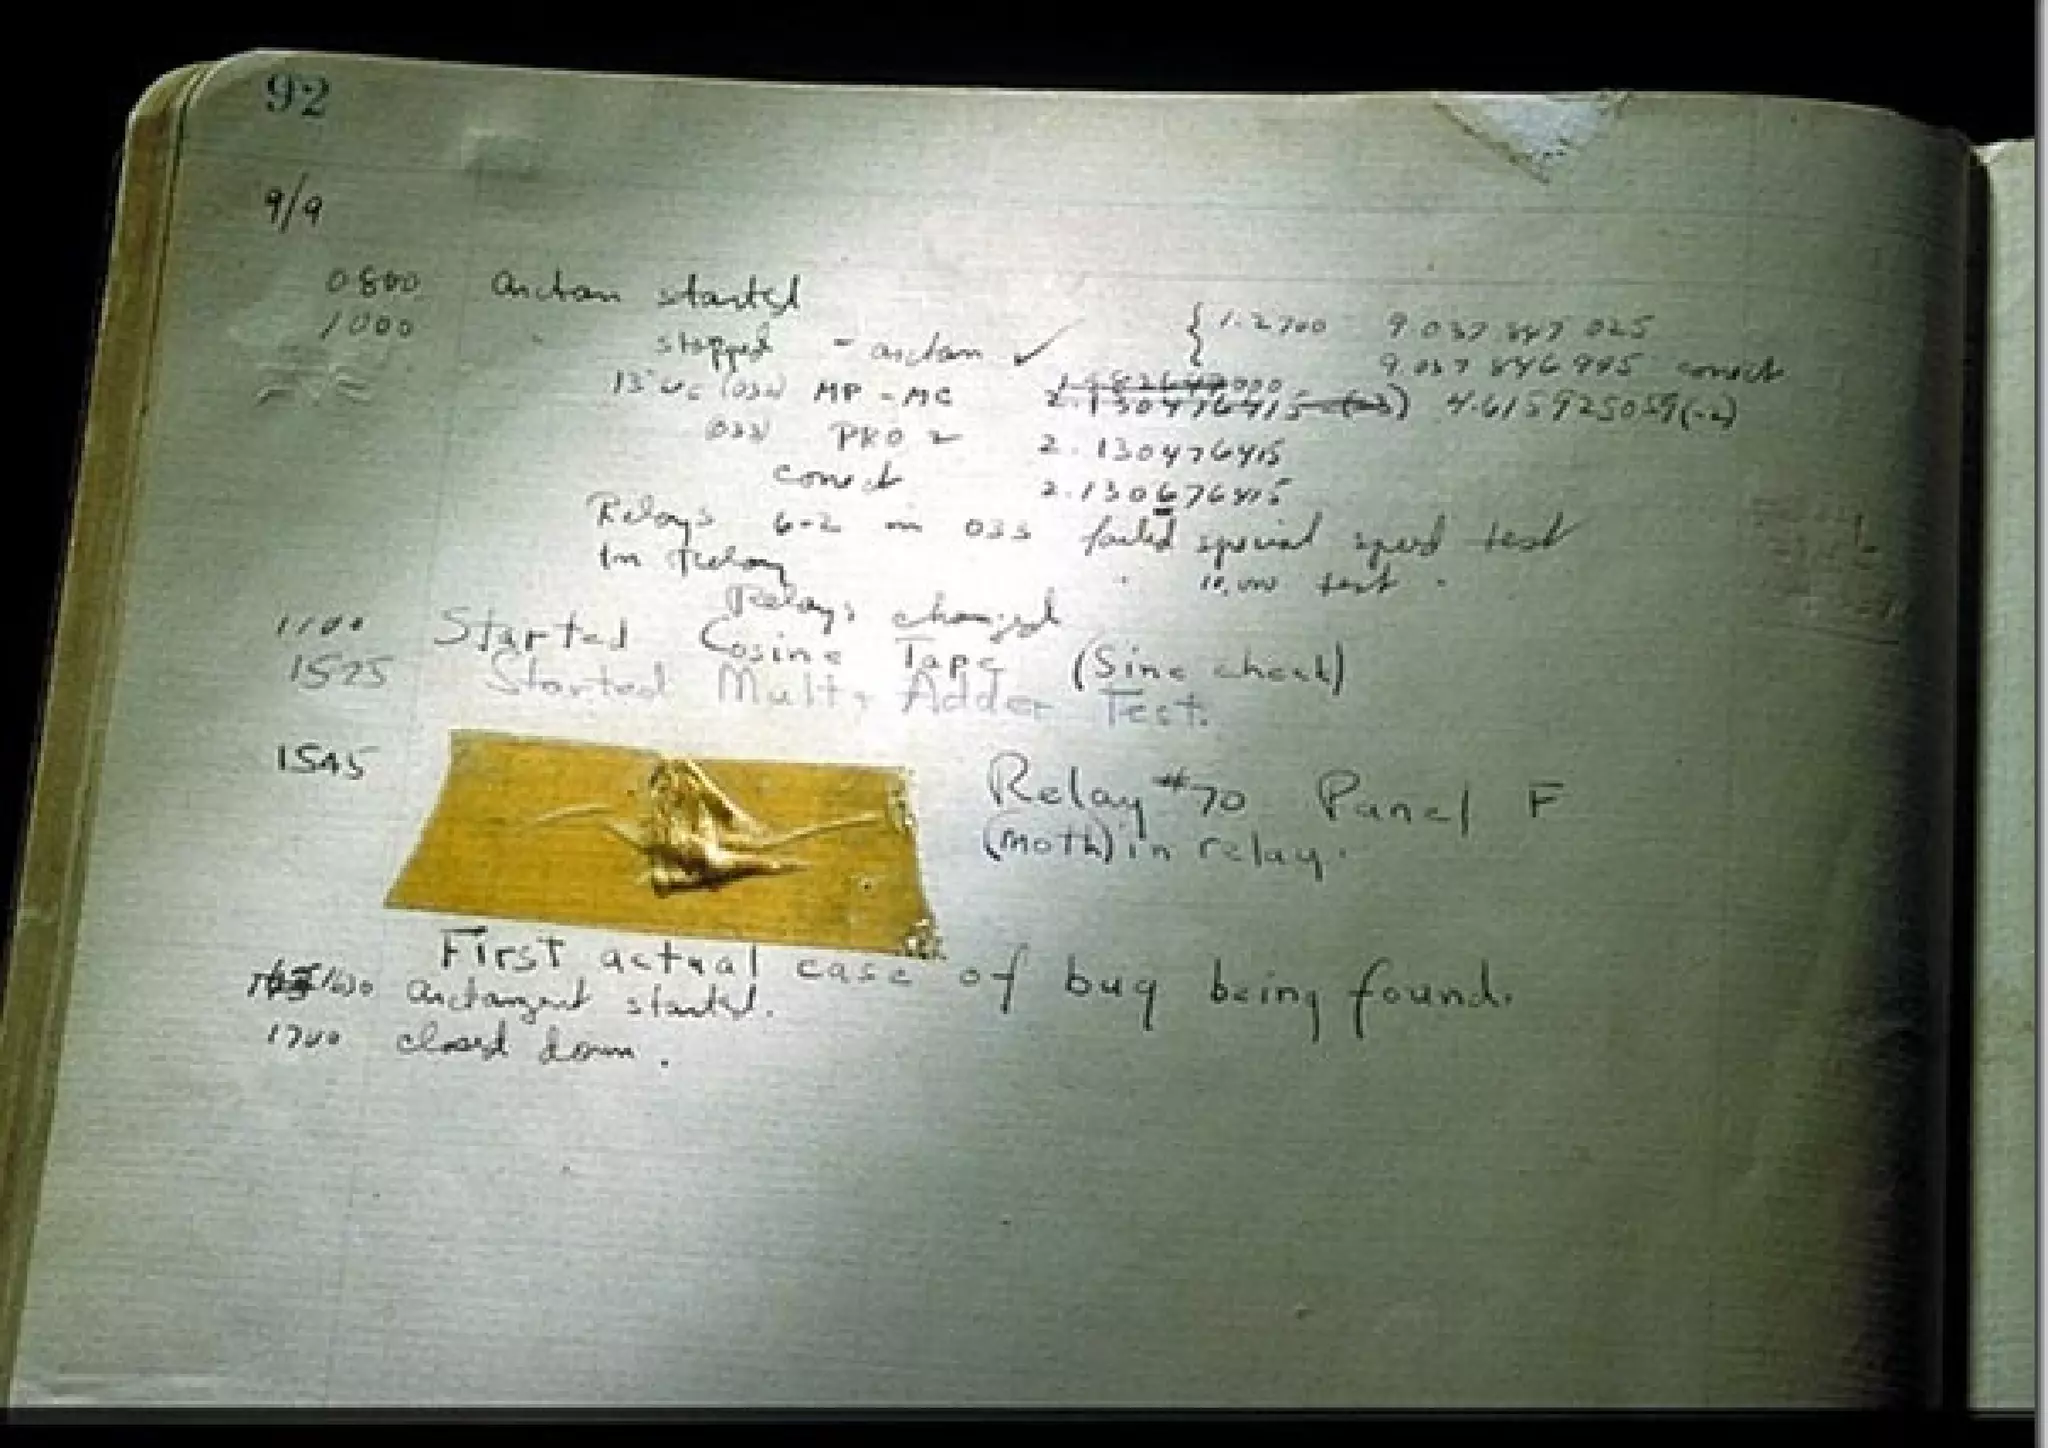 92
9/9
0800 Arctan started
1000 " stopped - arctan ✓ { 1.2700 9.037 847 025
9.037 846 995 correct
13"uc (032) MP - MC 2.130476415 (-3) 4.615925059(-2)
(033) PRO 2 2.130476415
correct 2.130676415
Relays 6-2 in 033 failed special speed test
in relay " 10,000 test "
Relays changed
1100 Started Cosine Tape (Sine check)
1525 Started Mult+ Adder Test.
1545 Relay #70 Panel F
(moth) in relay.
First actual case of bug being found.
1630 arctangent started.
1700 closed down.